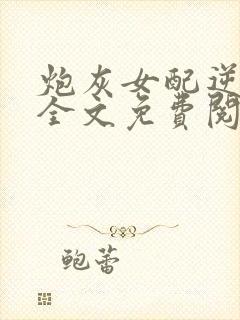 炮灰女配逆
全文免費閱
鲍蕾